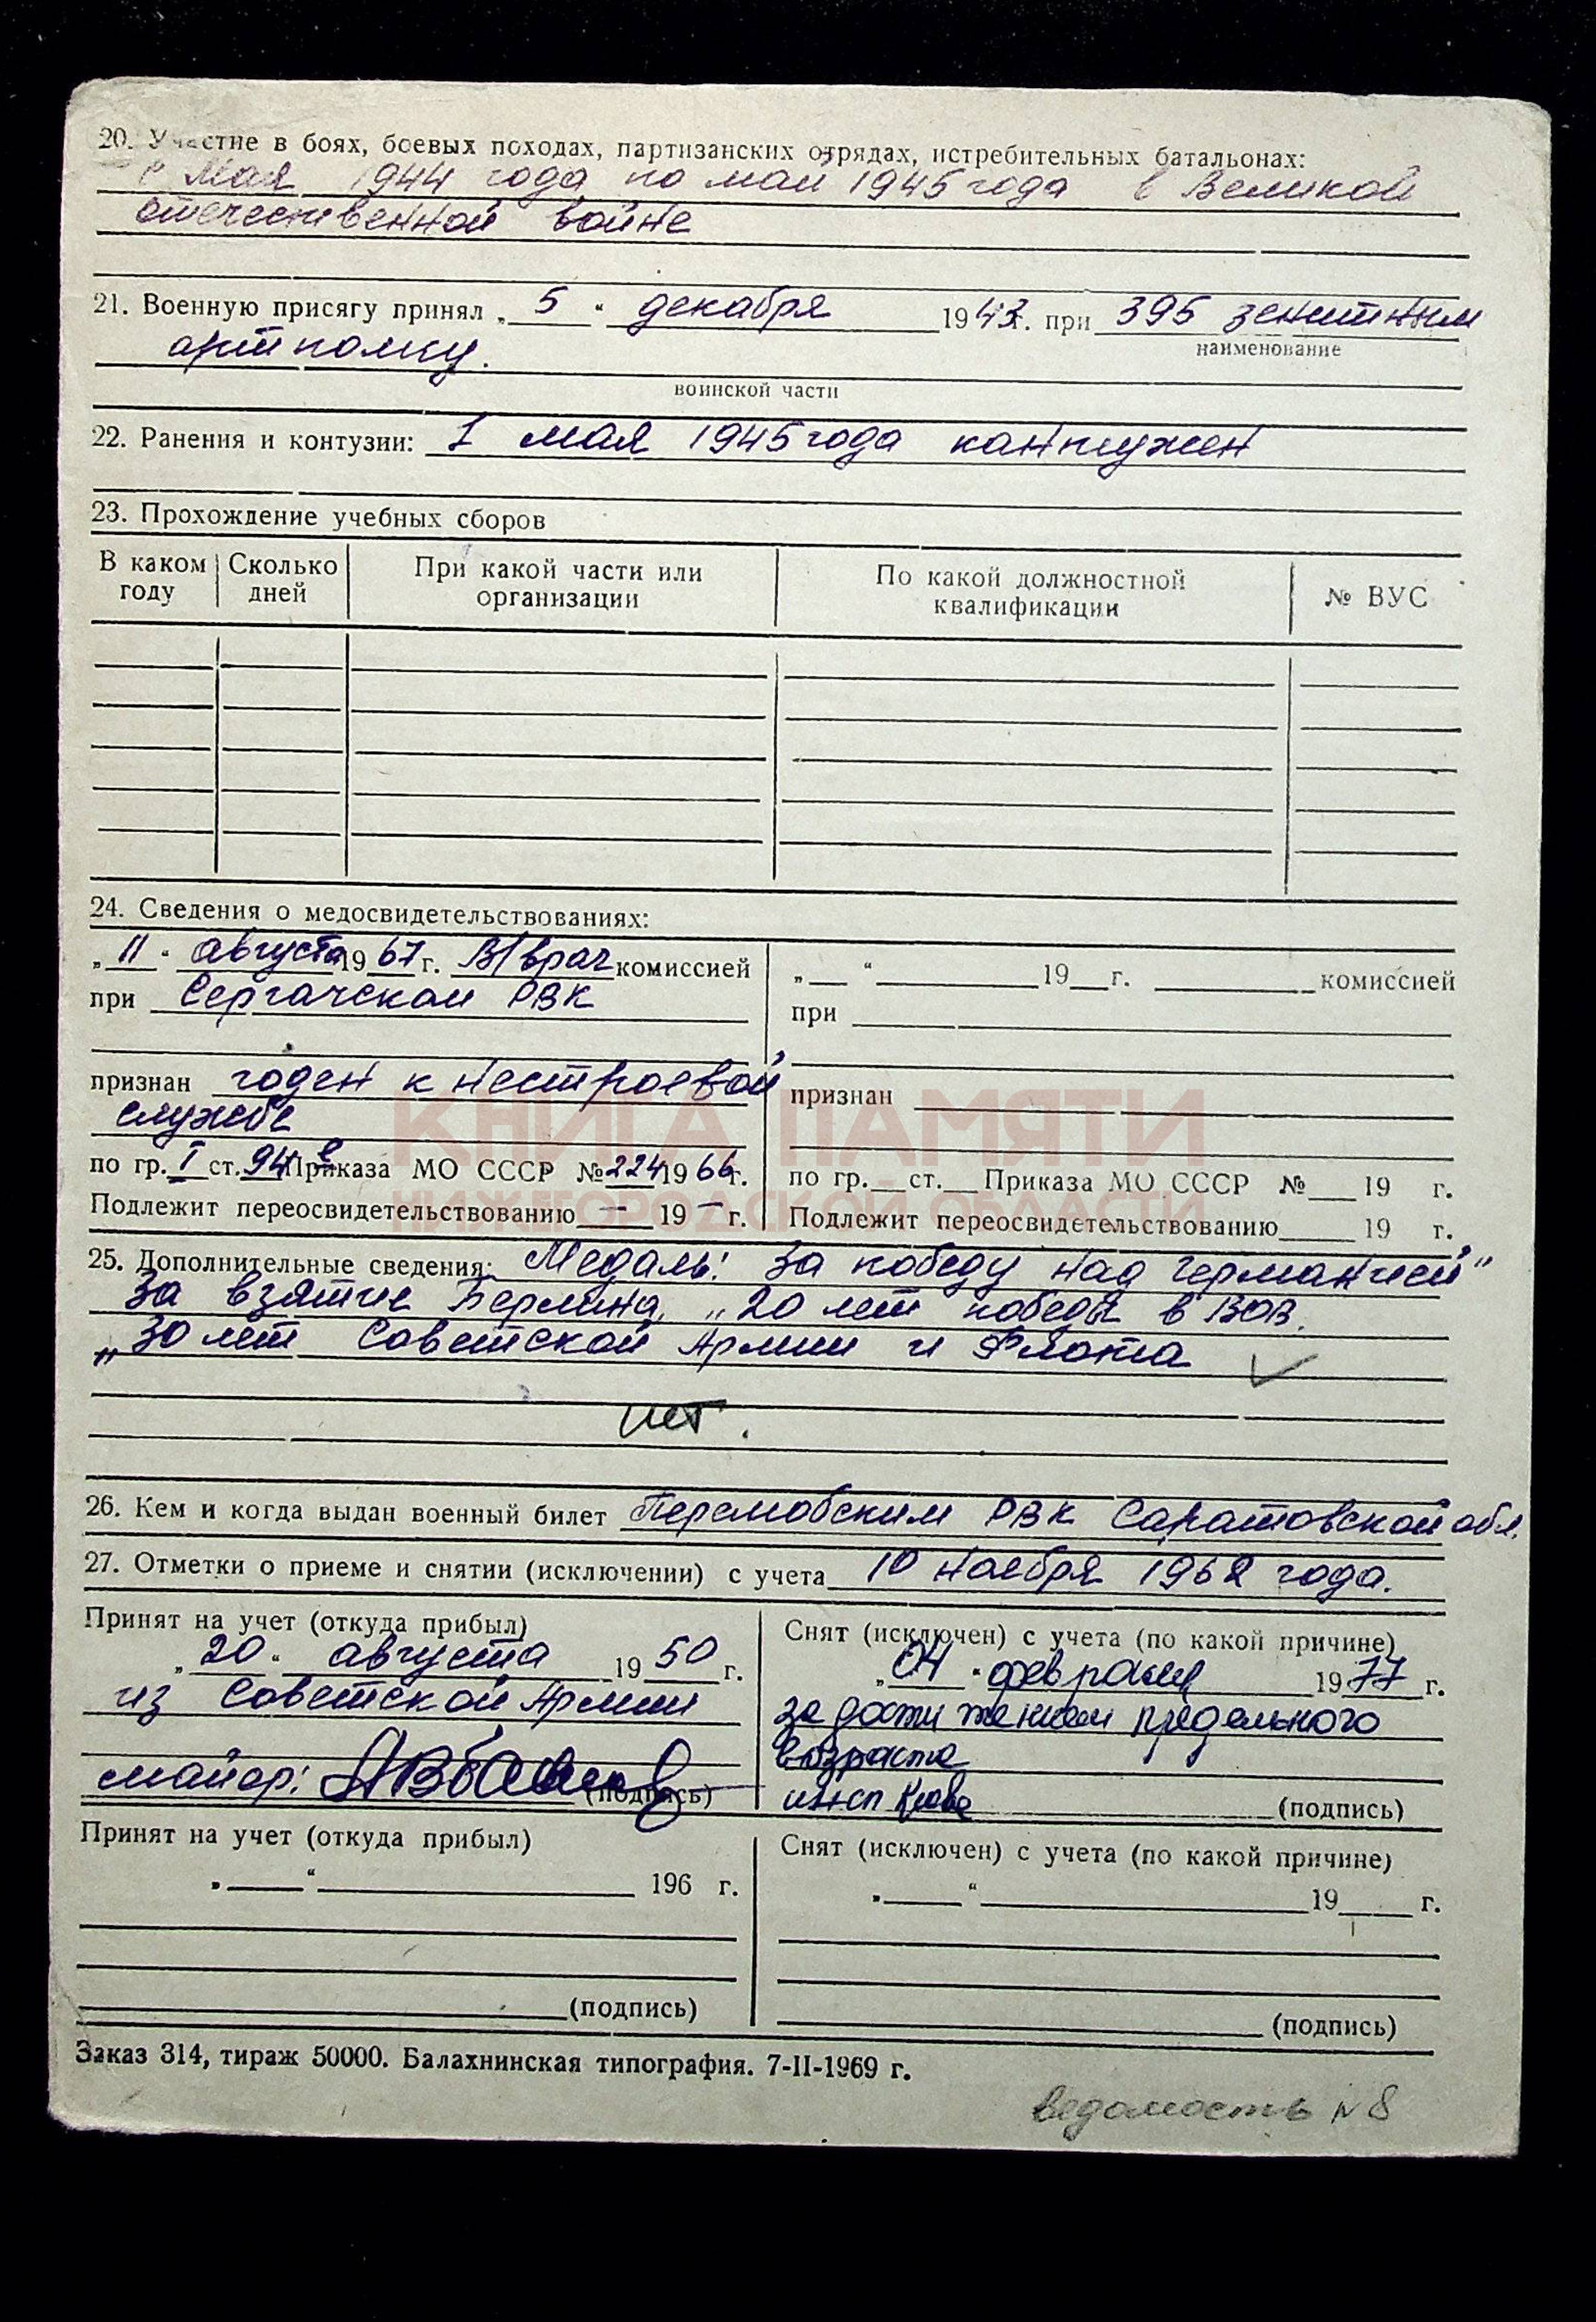 20. Участие в боях, боевых походах, партизанских отрядах, истребительных батальонах:
с Мая 1944 года по май 1945 года в Великой
отечественной войне
21. Военную присягу принял „ 5 “ декабря 1943 г. при 395 зенитным
арт полку.
наименование
воинской части
22. Ранения и контузии: 1 мая 1945 года контужен
23. Прохождение учебных сборов
В каком году Сколько дней При какой части или организации По какой должностной квалификации № ВУС
24. Сведения о медосвидетельствованиях:
„ 11 “ августа 1967 г. В/врач комиссией
при Сергачском РВК
признан годен к нестроевой
службе
по гр. I ст. 94 е Приказа МО СССР № 224 1966 г.
Подлежит переосвидетельствованию — 19 — г.
„ “ 19 г. комиссией
при
признан
по гр. ст. Приказа МО СССР № 19 г.
Подлежит переосвидетельствованию 19 г.
КНИГА ПАМЯТИ
НИЖЕГОРОДСКОЙ ОБЛАСТИ
25. Дополнительные сведения: Медаль: За победу над Германией"
За взятие Берлина, „20 лет победы в ВОВ.
„30 лет Советской Армии и Флота
нет.
26. Кем и когда выдан военный билет РВК Саратовской обл.
27. Отметки о приеме и снятии (исключении) с учета 10 ноября 1962 года.
Принят на учет (откуда прибыл)
„ 20 “ августа 1950 г.
из Советской Армии
майор:
(подпись)
Снят (исключен) с учета (по какой причине)
„ 04 “ февраля 1977 г.
за достижением предельного
возраста
инсп
(подпись)
Принят на учет (откуда прибыл)
„ “ 196 г.
(подпись)
Снят (исключен) с учета (по какой причине)
„ “ 19 г.
(подпись)
Заказ 314, тираж 50000. Балахнинская типография. 7-II-1969 г.
ведомость № 8